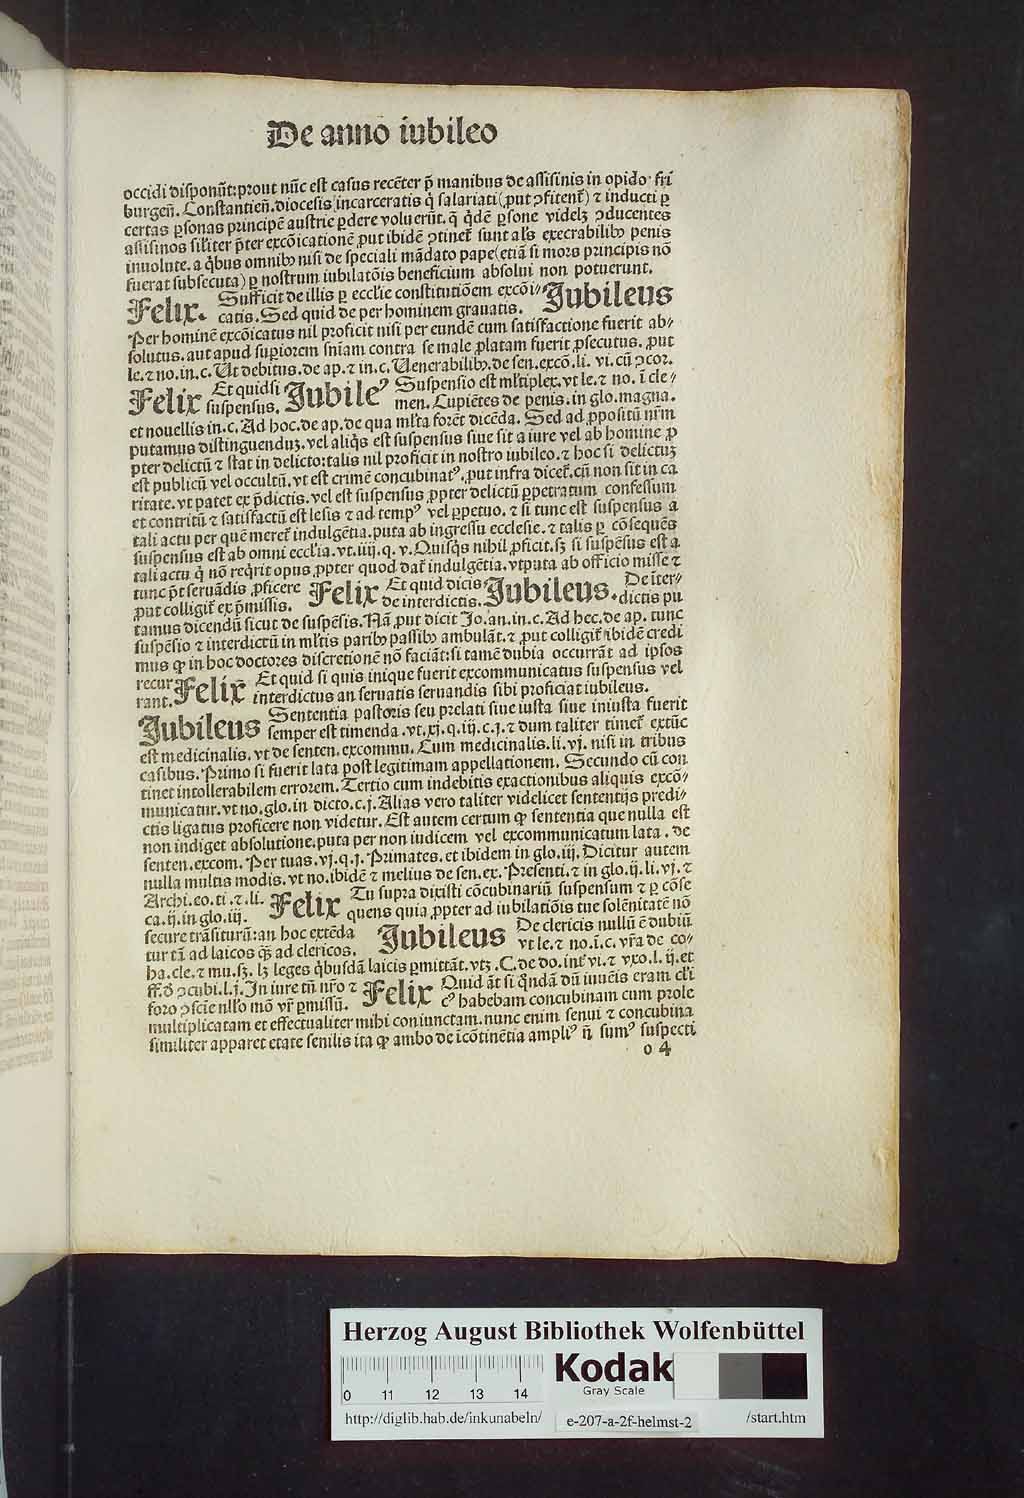 De anno iubileo
occidi disponūt: prout nūc est casus recēter p̄ manibus de assisinis in opido fri
burgeñ. Constantieñ. diocesis incarceratis q̇ salariati (ꝓut ↄfitent̄) ⁊ inducti ꝑ
certas ꝑsonas principē austrie ꝑdere voluerūt. q̄ q̇dē ꝑsone videlꝫ ↄducentes
assisinos sil̄iter p̄ter excōicationē ꝓut ibidē ↄtinet̄ sunt al̄s execrabilibꝰ penis
inuolute. a q̇bus omnibꝰ nisi de speciali mādato pape (etiā si mors principis nō
fuerat subsecuta) ꝑ nostrum iubilatōis beneficium absolui non potuerunt.
Felix. Sufficit de illis ꝑ eccl̄ie constitutiōem excōi⸗
catis. Sed quid de per hominem grauatis. Jubileus
Per hominē excōicatus nil proficit nisi per eundē cum satisfactione fuerit ab⸗
solutus. aut apud suꝑiorem sn̄iam contra se male ꝓlatam fuerit ꝓsecutus. ꝓut
le. ⁊ no. in. c. Ut debitus. de ap. ⁊ in. c. Uenerabilibꝰ. de sen. excō. li. vi. cū ↄcor.
Felix Et quid si
suspensus. Jubileꝰ Suspensio est ml̄tiplex. vt le. ⁊ no. ī cle⸗
men. Cupiētes de penis. in glo. magna.
et nouellis in. c. Ad hoc. de ap. de qua ml̄ta forēt dicēda. Sed ad ꝓpositū nr̄m
putamus distinguenduꝫ. vel aliq̇s est suspensus siue sit a iure vel ab homine ꝓ
pter delictū ⁊ stat in delicto: talis nil proficit in nostro iubileo. ⁊ hoc si delictuꝫ
est publicū vel occultū. vt est crimē concubinatꝰ. ꝓut infra dicet̄. cū non sit in ca
ritate. vt patet ex p̄dictis. vel est suspensus ꝓpter delictū ꝑpetratum confessum
et contritū ⁊ satisfactū est lesis ⁊ ad tempꝰ vel ꝑpetuo. ⁊ si tunc est suspensus a
tali actu per quē meret̄ indulgētia. puta ab ingressu ecclesie. ⁊ talis ꝑ cōsequēs
suspensus est ab omni eccl̄ia. vt. iiij. q. v. Quisq̇s nihil ꝓficit. sꝫ si suspēsus est a
tali actu q̇ nō req̇rit opus ꝓpter quod dat̄ indulgētia. vtputa ab officio misse ⁊
tunc p̄t seruādis ꝓficere
ꝓut colligit̄ ex p̄missis. Felix Et quid dicis
de interdictis. Jubileus. De īter⸗
dictis pu
tamus dicendū sicut de suspēsis. Nā ꝓut dicit Jo. an. in. c. Ad hec. de ap. tunc
suspēsio ⁊ interdictū in ml̄tis paribꝰ passibꝰ ambulāt. ⁊ ꝓut colligit̄ ibidē credi
mus ꝙ in hoc doctores discretionē nō faciāt: si tamē dubia occurrāt ad ipsos
recur
rant. Felix Et quid si quis inique fuerit excommunicatus suspensus vel
interdictus an seruatis seruandis sibi proficiat iubileus.
Jubileus Sententia pastoris seu prelati siue iusta siue iniusta fuerit
semper est timenda. vt. xj. q. iij. c. j. ⁊ dum taliter timet̄ extūc
est medicinalis. vt de senten. excommu. Cum medicinalis. li. vj. nisi in tribus
casibus. Primo si fuerit lata post legitimam appellationem. Secundo cū con
tinet intollerabilem errorem. Tertio cum indebitis exactionibus aliquis excō⸗
municatur. vt no. glo. in dicto. c. j. Alias vero taliter videlicet sententijs predi⸗
ctis ligatus proficere non videtur. Est autem certum ꝙ sententia que nulla est
non indiget absolutione. puta per non iudicem vel excommunicatum lata. de
senten. excom. Per tuas. vj. q. j. Primates. et ibidem in glo. iij. Dicitur autem
nulla multis modis. vt no. ibidē ⁊ melius de sen. ex. Presenti. ⁊ in glo. ij. li. vj. ⁊
Archi. eo. ti. ⁊. li.
ca. ij. in glo. iij. Felix Tu supra dixisti cōcubinariū suspensum ⁊ ꝑ cōse
quens quia ꝓpter ad iubilatiōis tue solēnitatē nō
secure trāsiturū: an hoc extēda
tur tā ad laicos qꝫ ad clericos. Jubileus De clericis nullū ē dubiū
vt le. ⁊ no. ī. c. vr̄a de co⸗
ha. cle. ⁊ mu. sꝫ. lꝫ leges q̇busdā laicis ꝑmittāt. vtꝫ. C. de do. int̄ vi. ⁊ vxo. l. ij. et
ff. ð ↄcubi. l. j. In iure tñ nr̄o ⁊
foro ↄscīe nll̄o mō vr̄ ꝑmissū. Felix Quid āt si q̇ndā dū iuuēis eram cl̄i
cꝰ habebam concubinam cum prole
multiplicatam et effectualiter mihi coniunctam. nunc enim senui ⁊ concubina
similiter apparet etate senilis ita ꝙ ambo de īcōtinētia ampliꝰ ñ sumꝰ suspecti
o 4
Herzog August Bibliothek Wolfenbüttel
Kodak
Gray Scale
0 11 12 13 14
http://diglib.hab.de/inkunabeln/ e-207-a-2f-helmst-2 /start.htm